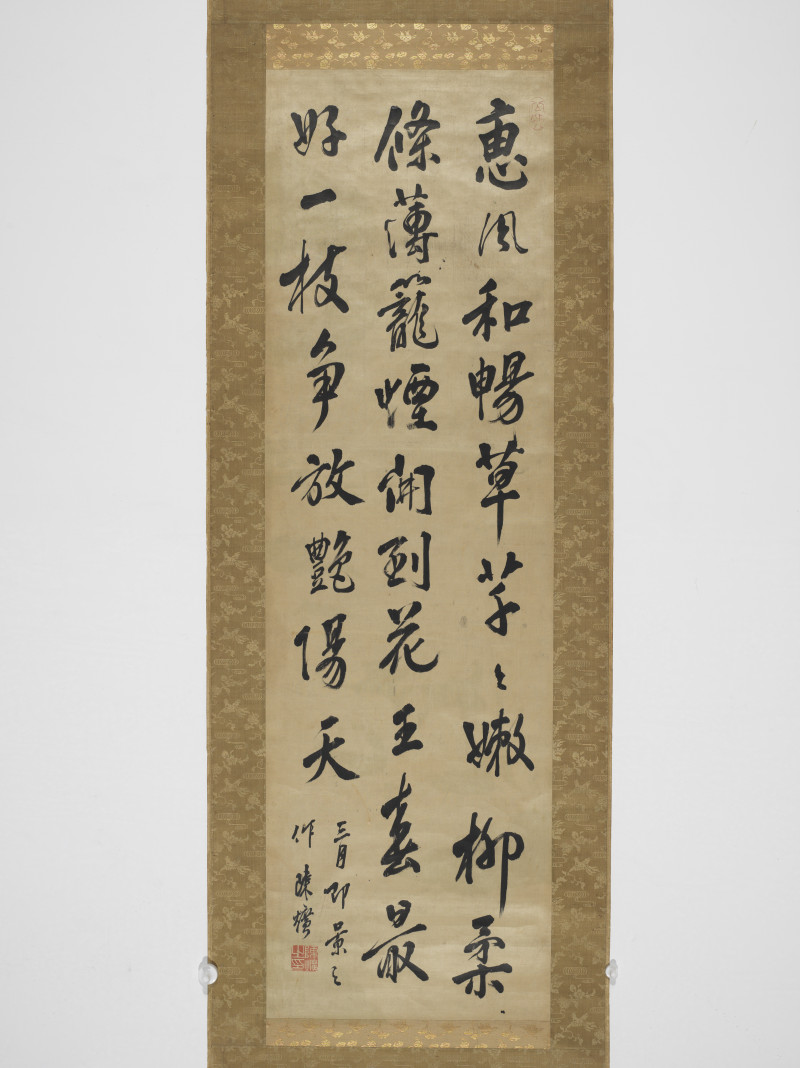 惠風和暢草芊々嫩柳柔
條薄籠煙開到花王春最
好一枝争放艷陽天
三月即景之
作 陳